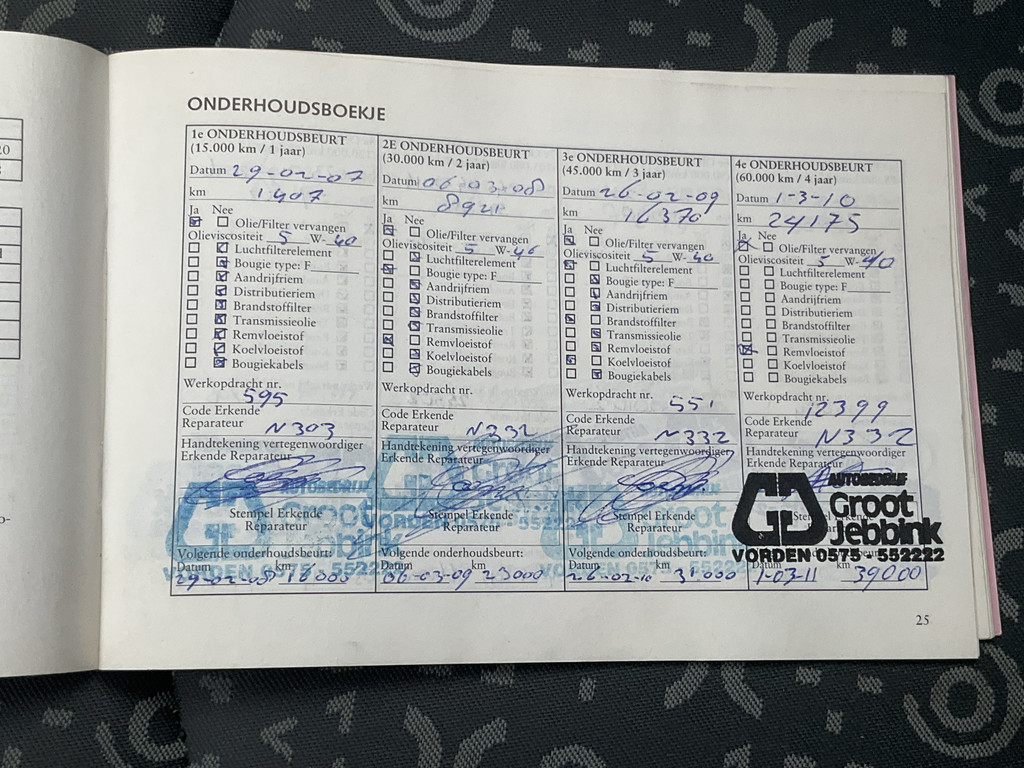 ONDERHOUDSBOEKJE
1e ONDERHOUDSBEURT
(15.000 km / 1 jaar)
Datum 29-02-07
km 1407
Ja Nee
Olie/Filter vervangen
Olieviscositeit 5 W-40
Luchtfilterelement
Bougie type: F
Aandrijfriem
Distributieriem
Brandstoffilter
Transmissieolie
Remvloeistof
Koelvloeistof
Bougiekabels
Werkopdracht nr.
595
Code Erkende
Reparateur N303
Handtekening vertegenwoordiger
Erkende Reparateur
Stempel Erkende
Reparateur
Volgende onderhoudsbeurt:
Datum km
29-02-08 16000
2E ONDERHOUDSBEURT
(30.000 km / 2 jaar)
Datum 06-03-08
km 8921
Ja Nee
Olie/Filter vervangen
Olieviscositeit 5 W-40
Luchtfilterelement
Bougie type: F
Aandrijfriem
Distributieriem
Brandstoffilter
Transmissieolie
Remvloeistof
Koelvloeistof
Bougiekabels
Werkopdracht nr.
Code Erkende
Reparateur N332
Handtekening vertegenwoordiger
Erkende Reparateur
Stempel Erkende
Reparateur
Volgende onderhoudsbeurt:
Datum km
06-03-09 23000
3e ONDERHOUDSBEURT
(45.000 km / 3 jaar)
Datum 26-02-09
km 16370
Ja Nee
Olie/Filter vervangen
Olieviscositeit 5 W-40
Luchtfilterelement
Bougie type: F
Aandrijfriem
Distributieriem
Brandstoffilter
Transmissieolie
Remvloeistof
Koelvloeistof
Bougiekabels
Werkopdracht nr.
551
Code Erkende
Reparateur N332
Handtekening vertegenwoordiger
Erkende Reparateur
Stempel Erkende
Reparateur
Volgende onderhoudsbeurt:
Datum km
26-02-10 31000
4e ONDERHOUDSBEURT
(60.000 km / 4 jaar)
Datum 1-3-10
km 24175
Ja Nee
Olie/Filter vervangen
Olieviscositeit 5 W-40
Luchtfilterelement
Bougie type: F
Aandrijfriem
Distributieriem
Brandstoffilter
Transmissieolie
Remvloeistof
Koelvloeistof
Bougiekabels
Werkopdracht nr.
12399
Code Erkende
Reparateur N332
Handtekening vertegenwoordiger
Erkende Reparateur
AUTOBEDRIJF
Groot
Jebbink
VORDEN 0575-552222
Datum km
1-03-11 39000
25